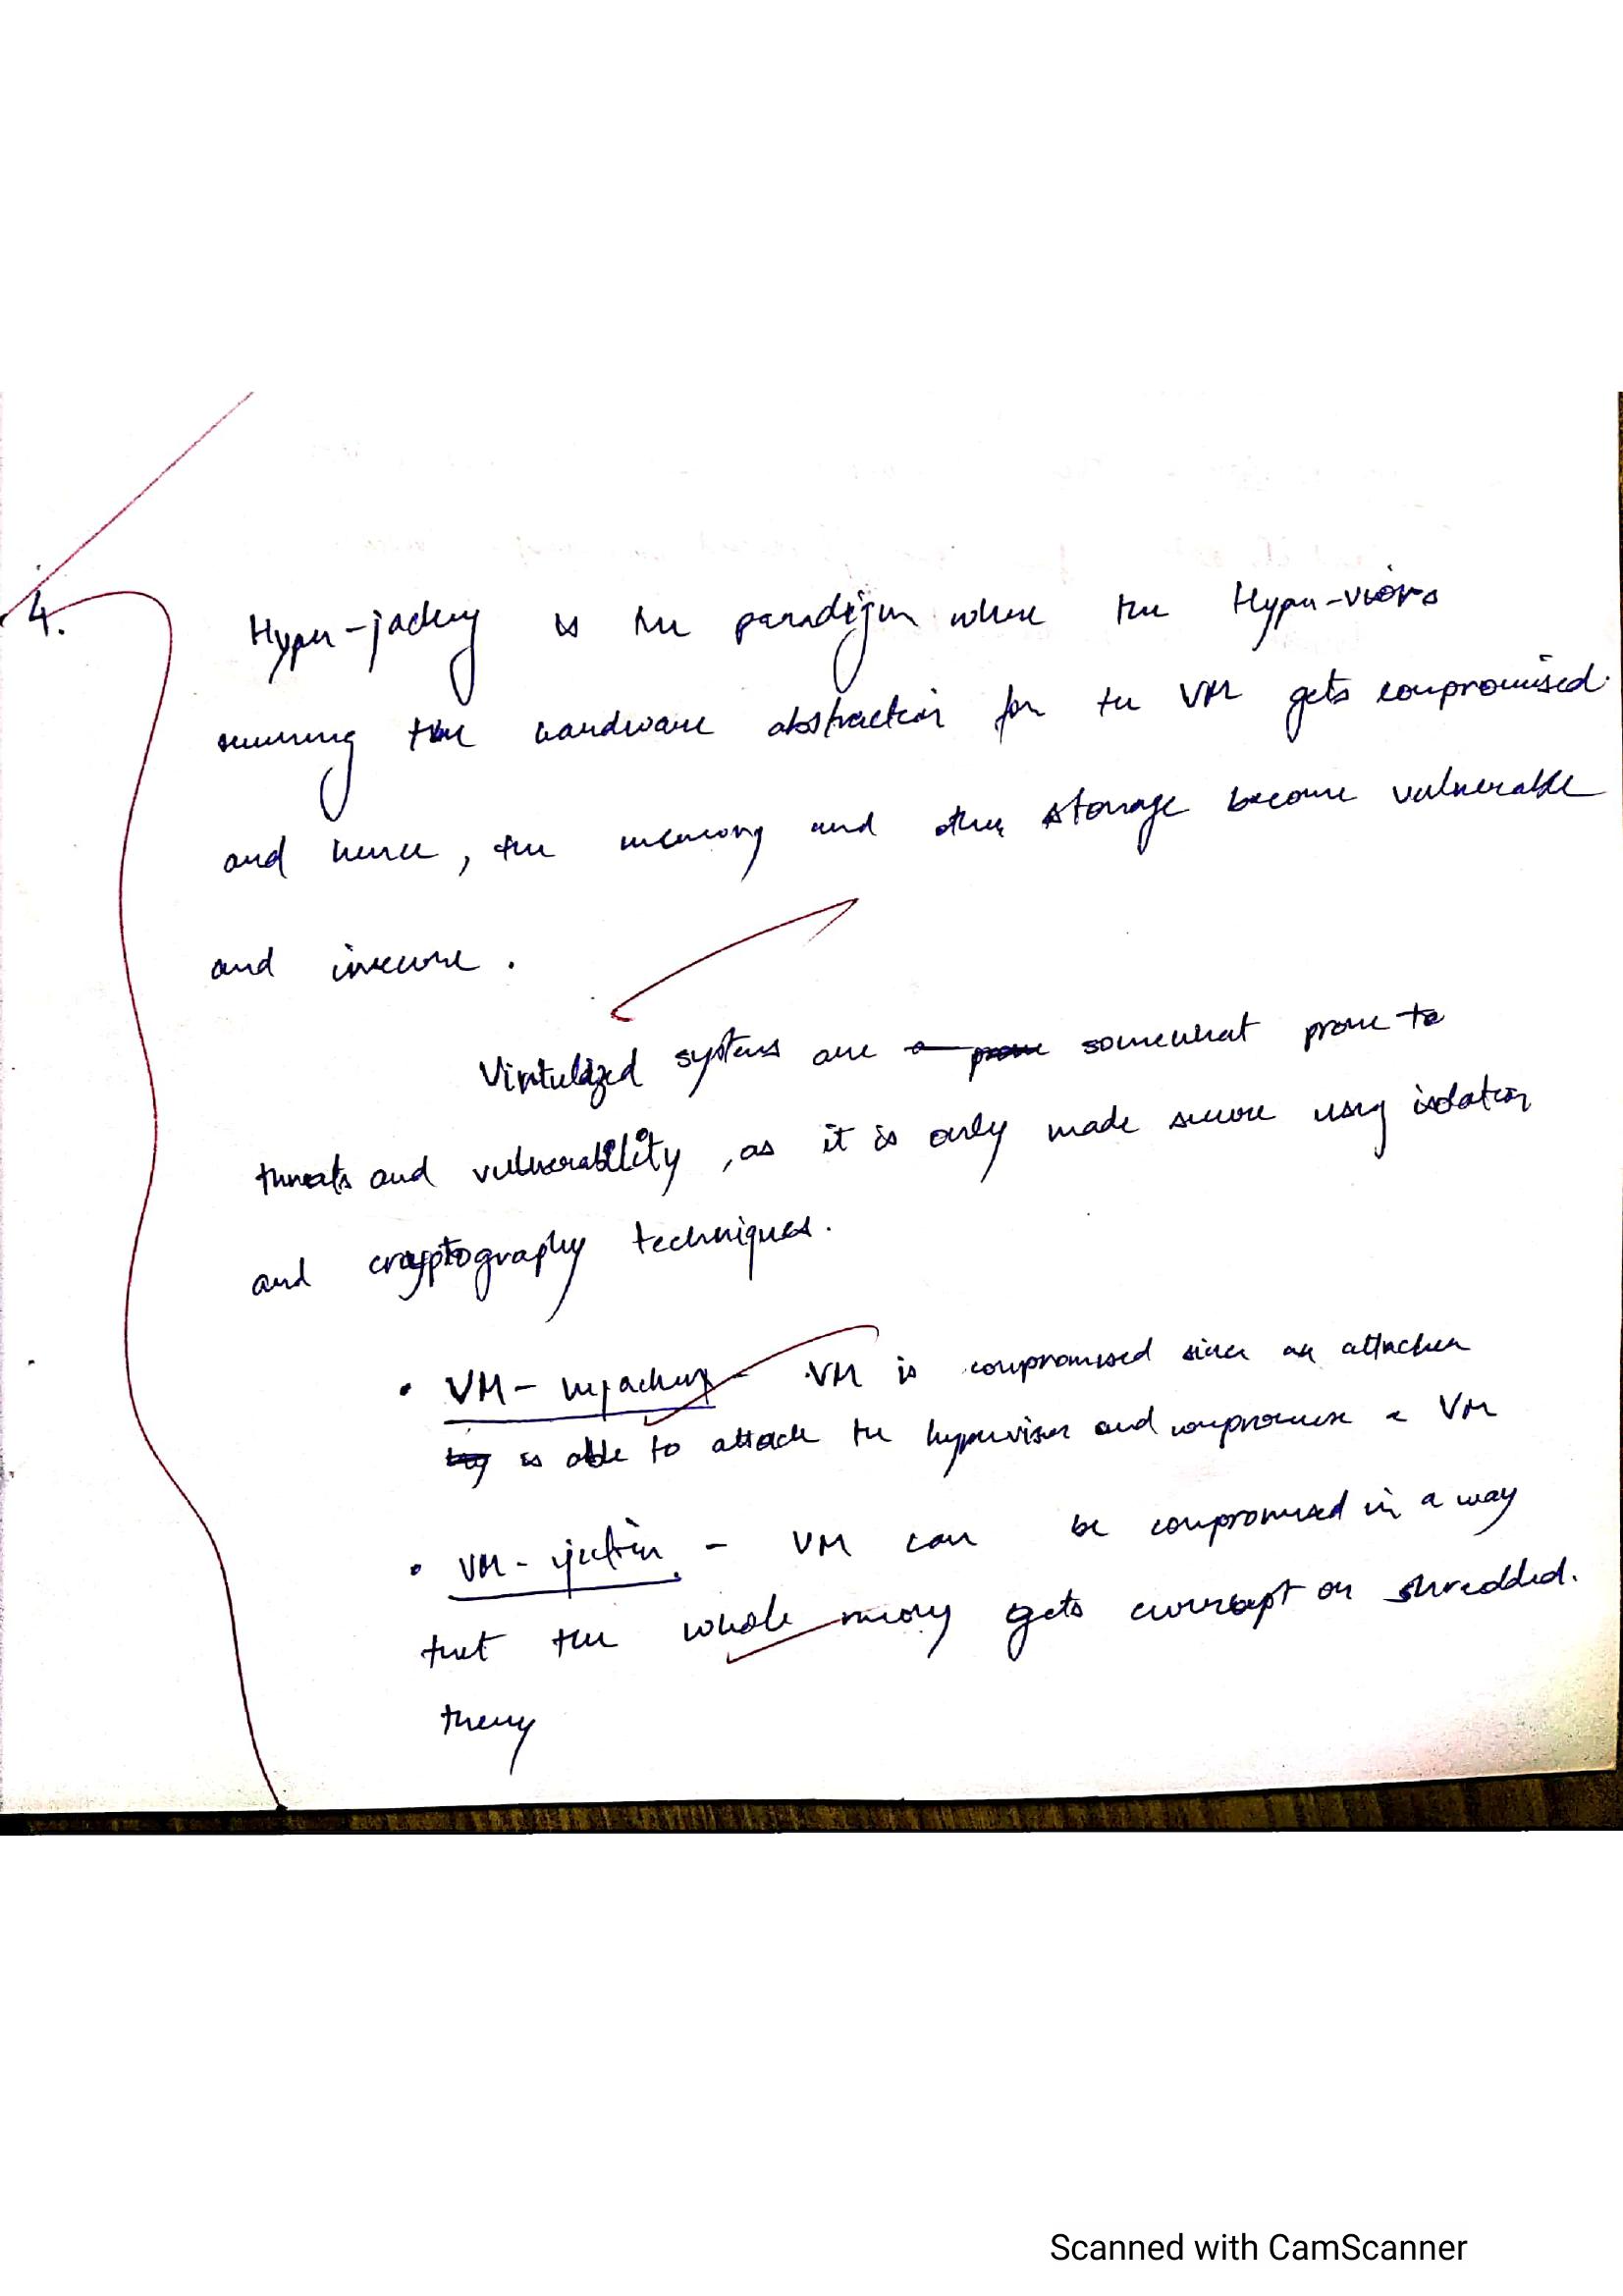 4. Hyper-jacking is the paradigm where the Hyper-viors
running the hardware abstraction for the VM gets compromised.
and hence, the memory and other storage become vulnerable
and insecure.
Virtulized systems are somewhat prone to
threats and vulnerability, as it is only made secure using isolation
and cryptography techniques.
• VM - - VM is compromised since an attacker
is able to attack the hypervisor and compromise a VM
• VM - - VM can be compromised in a way
that the whole gets corrupt or shredded.
Scanned with CamScanner